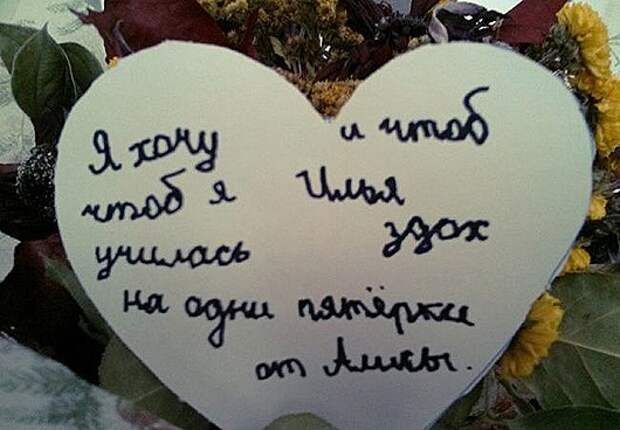 Я хочу
чтоб я
училась
и чтоб
Илья
здох
на одни пятёрки
от Алисы.